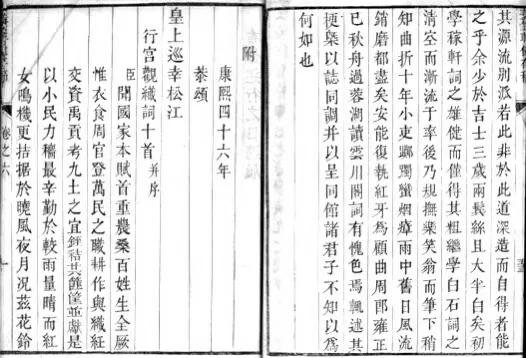 其源流別派若此非於此道深造而自得者能
之乎余少於吉士三歲兩鬢絲且大半白矣初
學稼軒詞之雄健而僅得其粗繼學白石詞之
清空而漸流于率後乃規撫樂笑翁而筆下稍
知曲折十年小吏躑躅蠻烟瘴雨中舊日風流
銷磨都盡矣安能復執紅牙爲顧曲周郎雍正
已秋舟過蓉湖讀雲川閣詞有愧色焉輒述其
梗槩以誌同調并以呈同館諸君子不知以爲
何如也
附
康熙四十六年
恭頌
皇上巡幸松江
行宮觀織詞十首并序
臣聞國家本賦首重農桑百姓生全厥
惟衣食周官登萬民之職耕作與織紅
交資禹貢考九土之宜銍秸共篚筐並獻是
以小民力穡最辛勤於較雨量晴而紅
女鳴機更拮据於曉風夜月況茲花鈴
卷之六